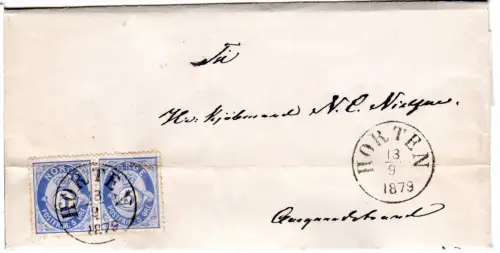 Til
Hr. Kjøbmand N. C. Nielsen.
HORTEN
13
9
1879
NORGE
HORTEN
13
9
1879
Aasgaardstrand